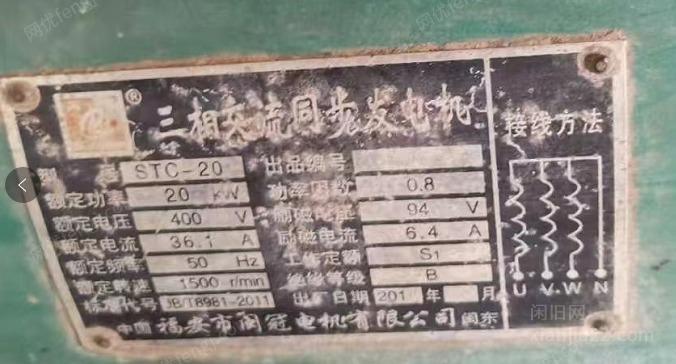 网优fenlei
三相交流同步发电机
型 号 STC-20 出品编号
额定功率 20 kW 功率因数 0.8
额定电压 400 V 励磁电压 94 V
额定电流 36.1 A 励磁电流 6.4 A
额定频率 50 Hz 工作定额 S1
额定转速 1500 r/min 绝缘等级 B
标准代号 JB/T8981-2011 出厂日期 201 年 月
中国 福安市闽冠电机有限公司 闽东
接线方法
U V W N
闲旧网